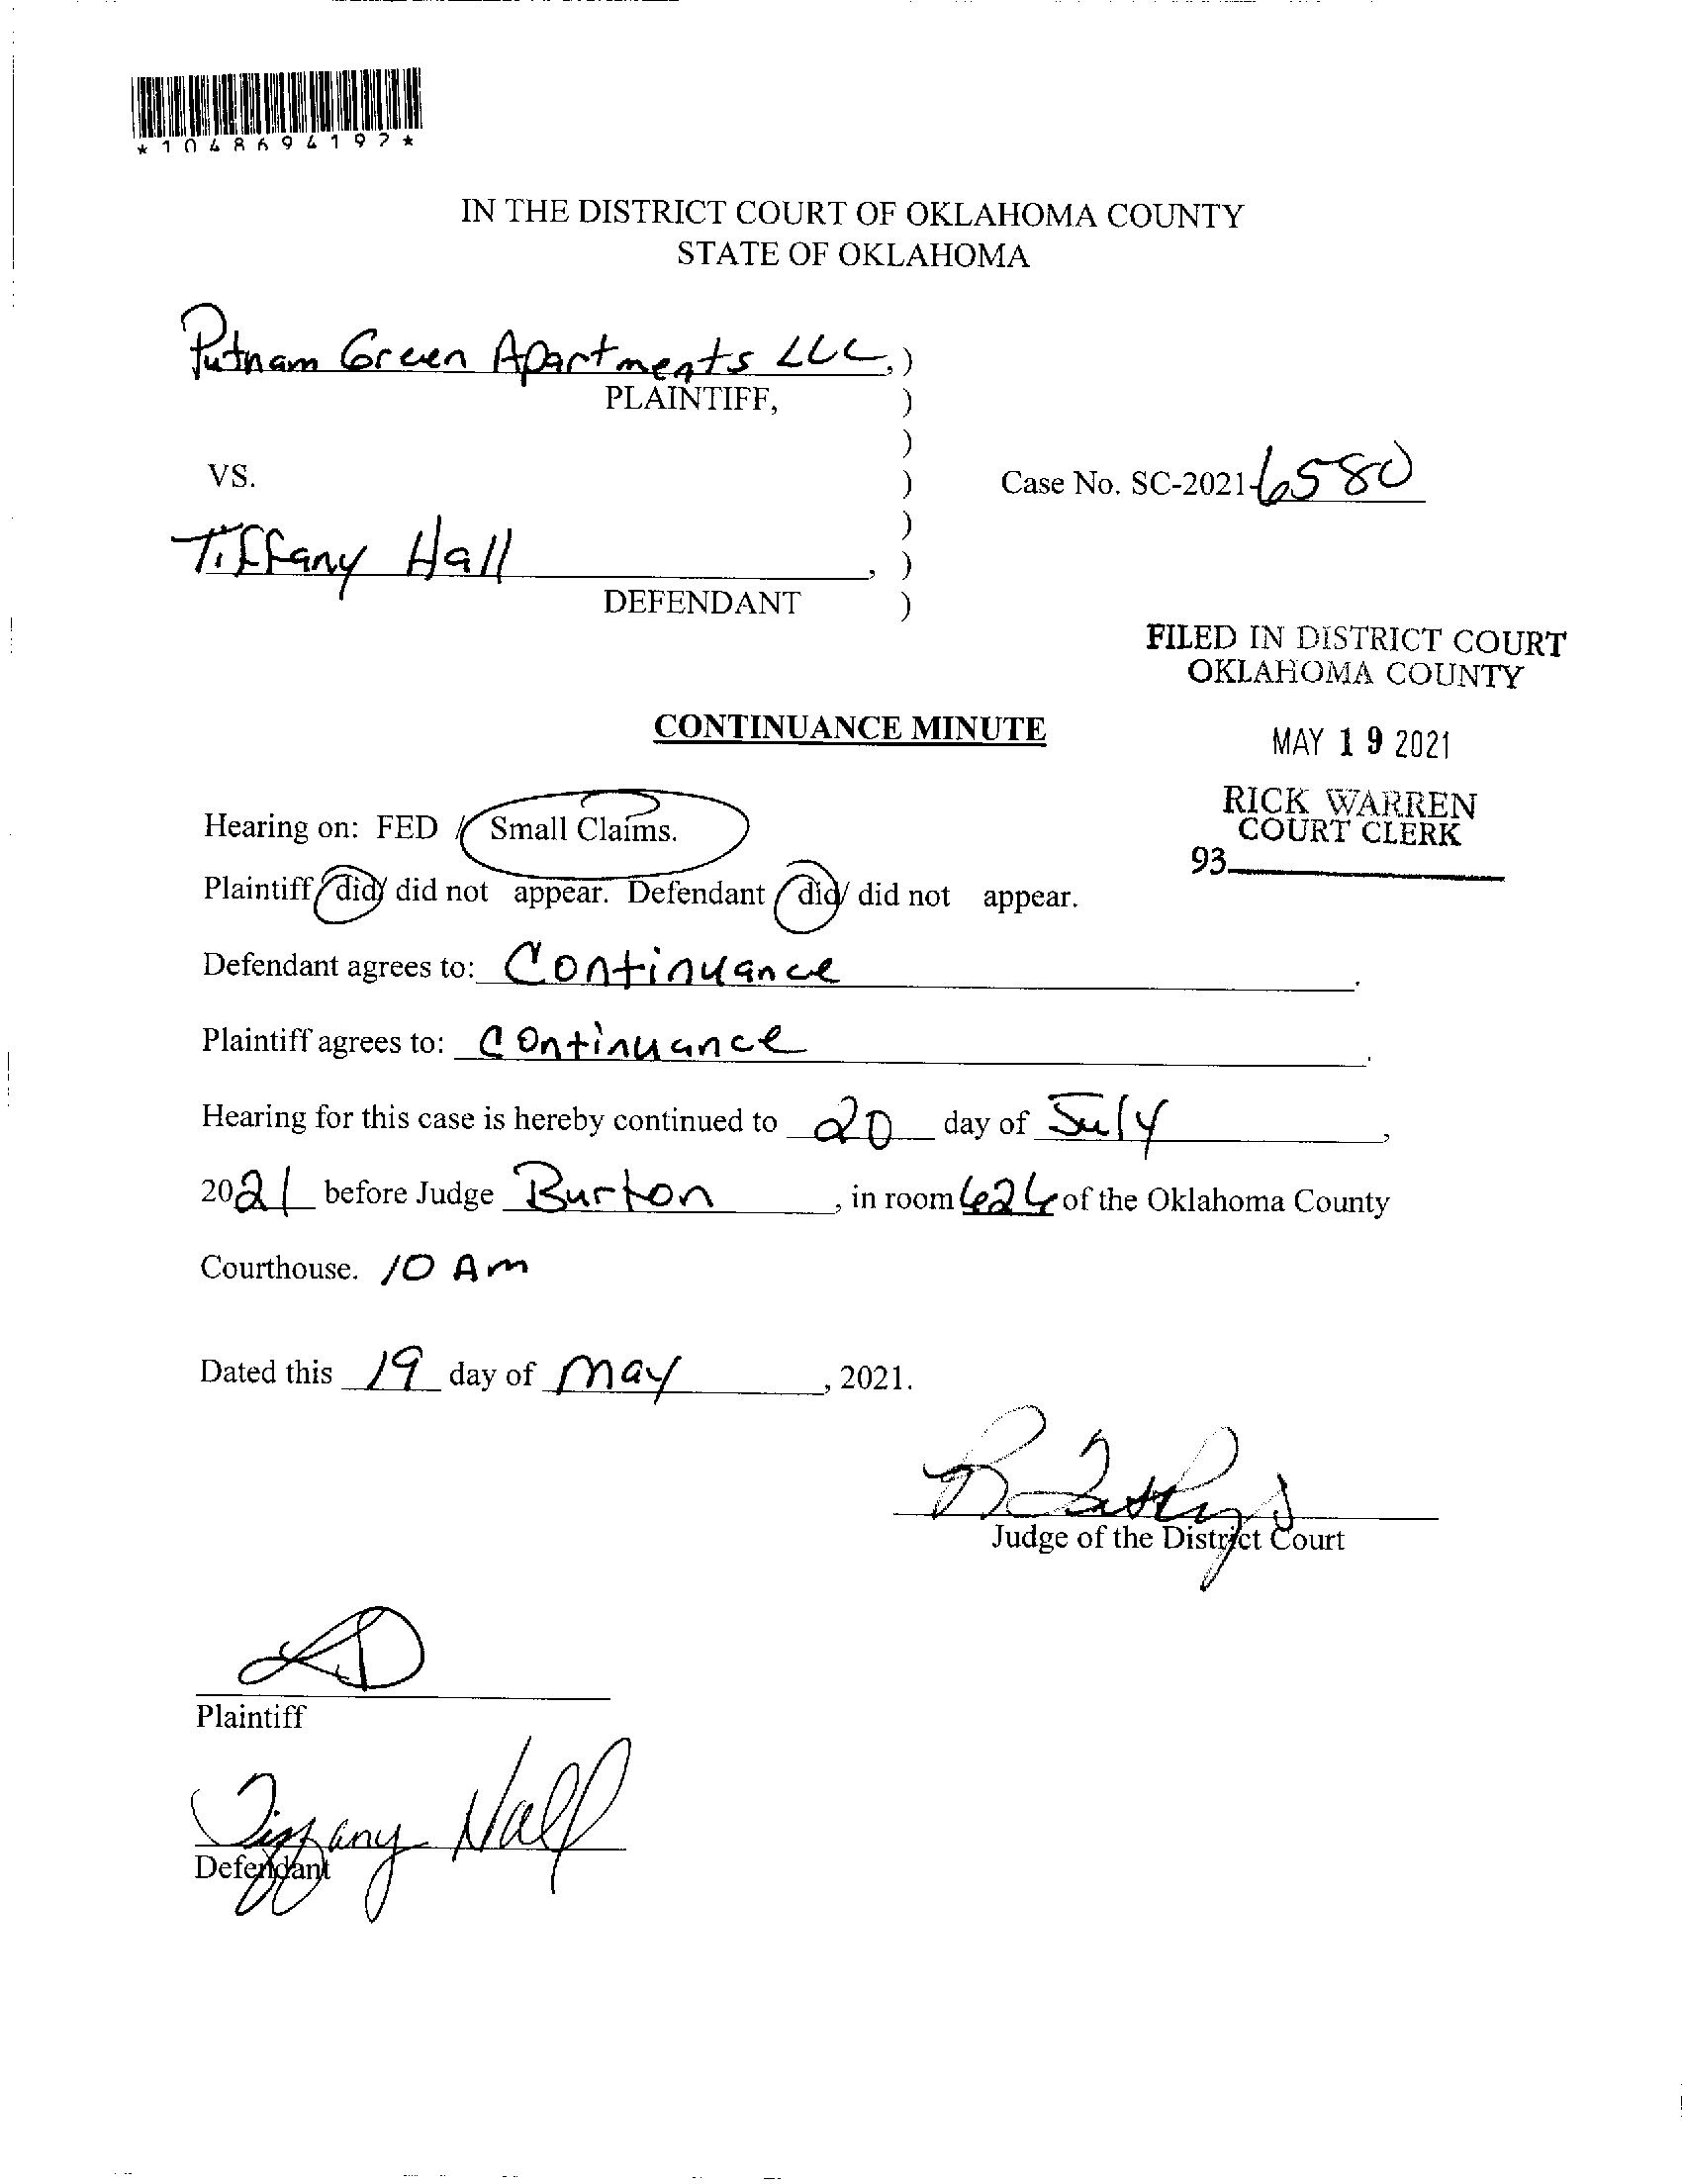 *1048694197*
IN THE DISTRICT COURT OF OKLAHOMA COUNTY
STATE OF OKLAHOMA
Putnam Green Apartments LLC,)
PLAINTIFF, )
)
VS. ) Case No. SC-2021-6580
)
Tiffany Hall , )
DEFENDANT )
FILED IN DISTRICT COURT
OKLAHOMA COUNTY
CONTINUANCE MINUTE
MAY 19 2021
RICK WARREN
COURT CLERK
93
Hearing on: FED / Small Claims.
Plaintiff did/ did not appear. Defendant did/ did not appear.
Defendant agrees to: Continuance .
Plaintiff agrees to: Continuance .
Hearing for this case is hereby continued to 20 day of July ,
2021 before Judge Burton , in room 624 of the Oklahoma County
Courthouse. 10 Am
Dated this 19 day of May , 2021.
Judge of the District Court
Plaintiff
Tiffany Hall
Defendant